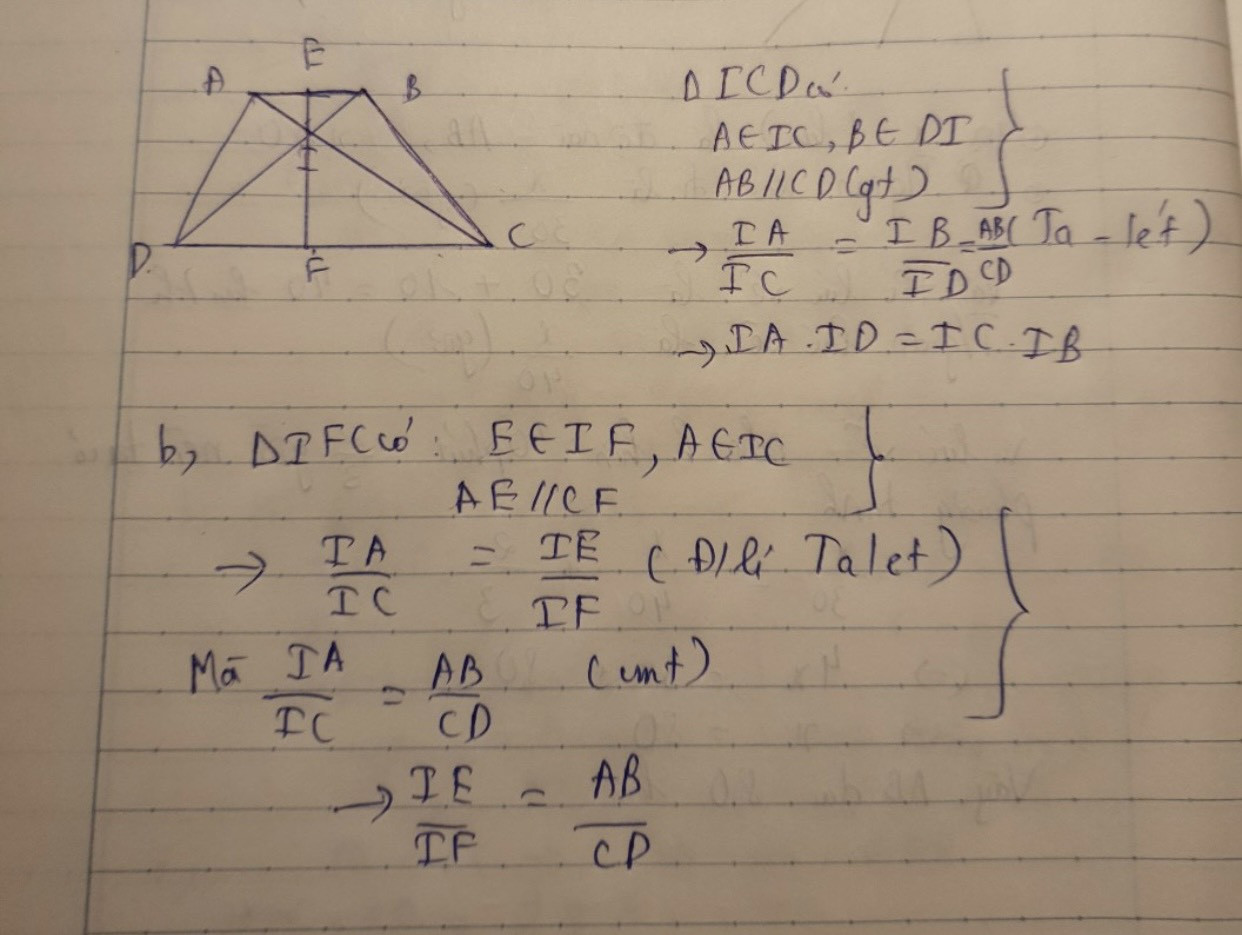 E
A B
D. C
F
Δ ICD có:
A∈IC, B∈DI
AB//CD(gt)
→ IA/IC = IB/ID = AB/CD (Ta-lét)
→ IA.ID = IC.IB
b, ΔIFC có: E∈IF, A∈IC
AE//CF
→ IA/IC = IE/IF (Đ/lí Talet)
Mà IA/IC = AB/CD (cmt)
→ IE/IF = AB/CD